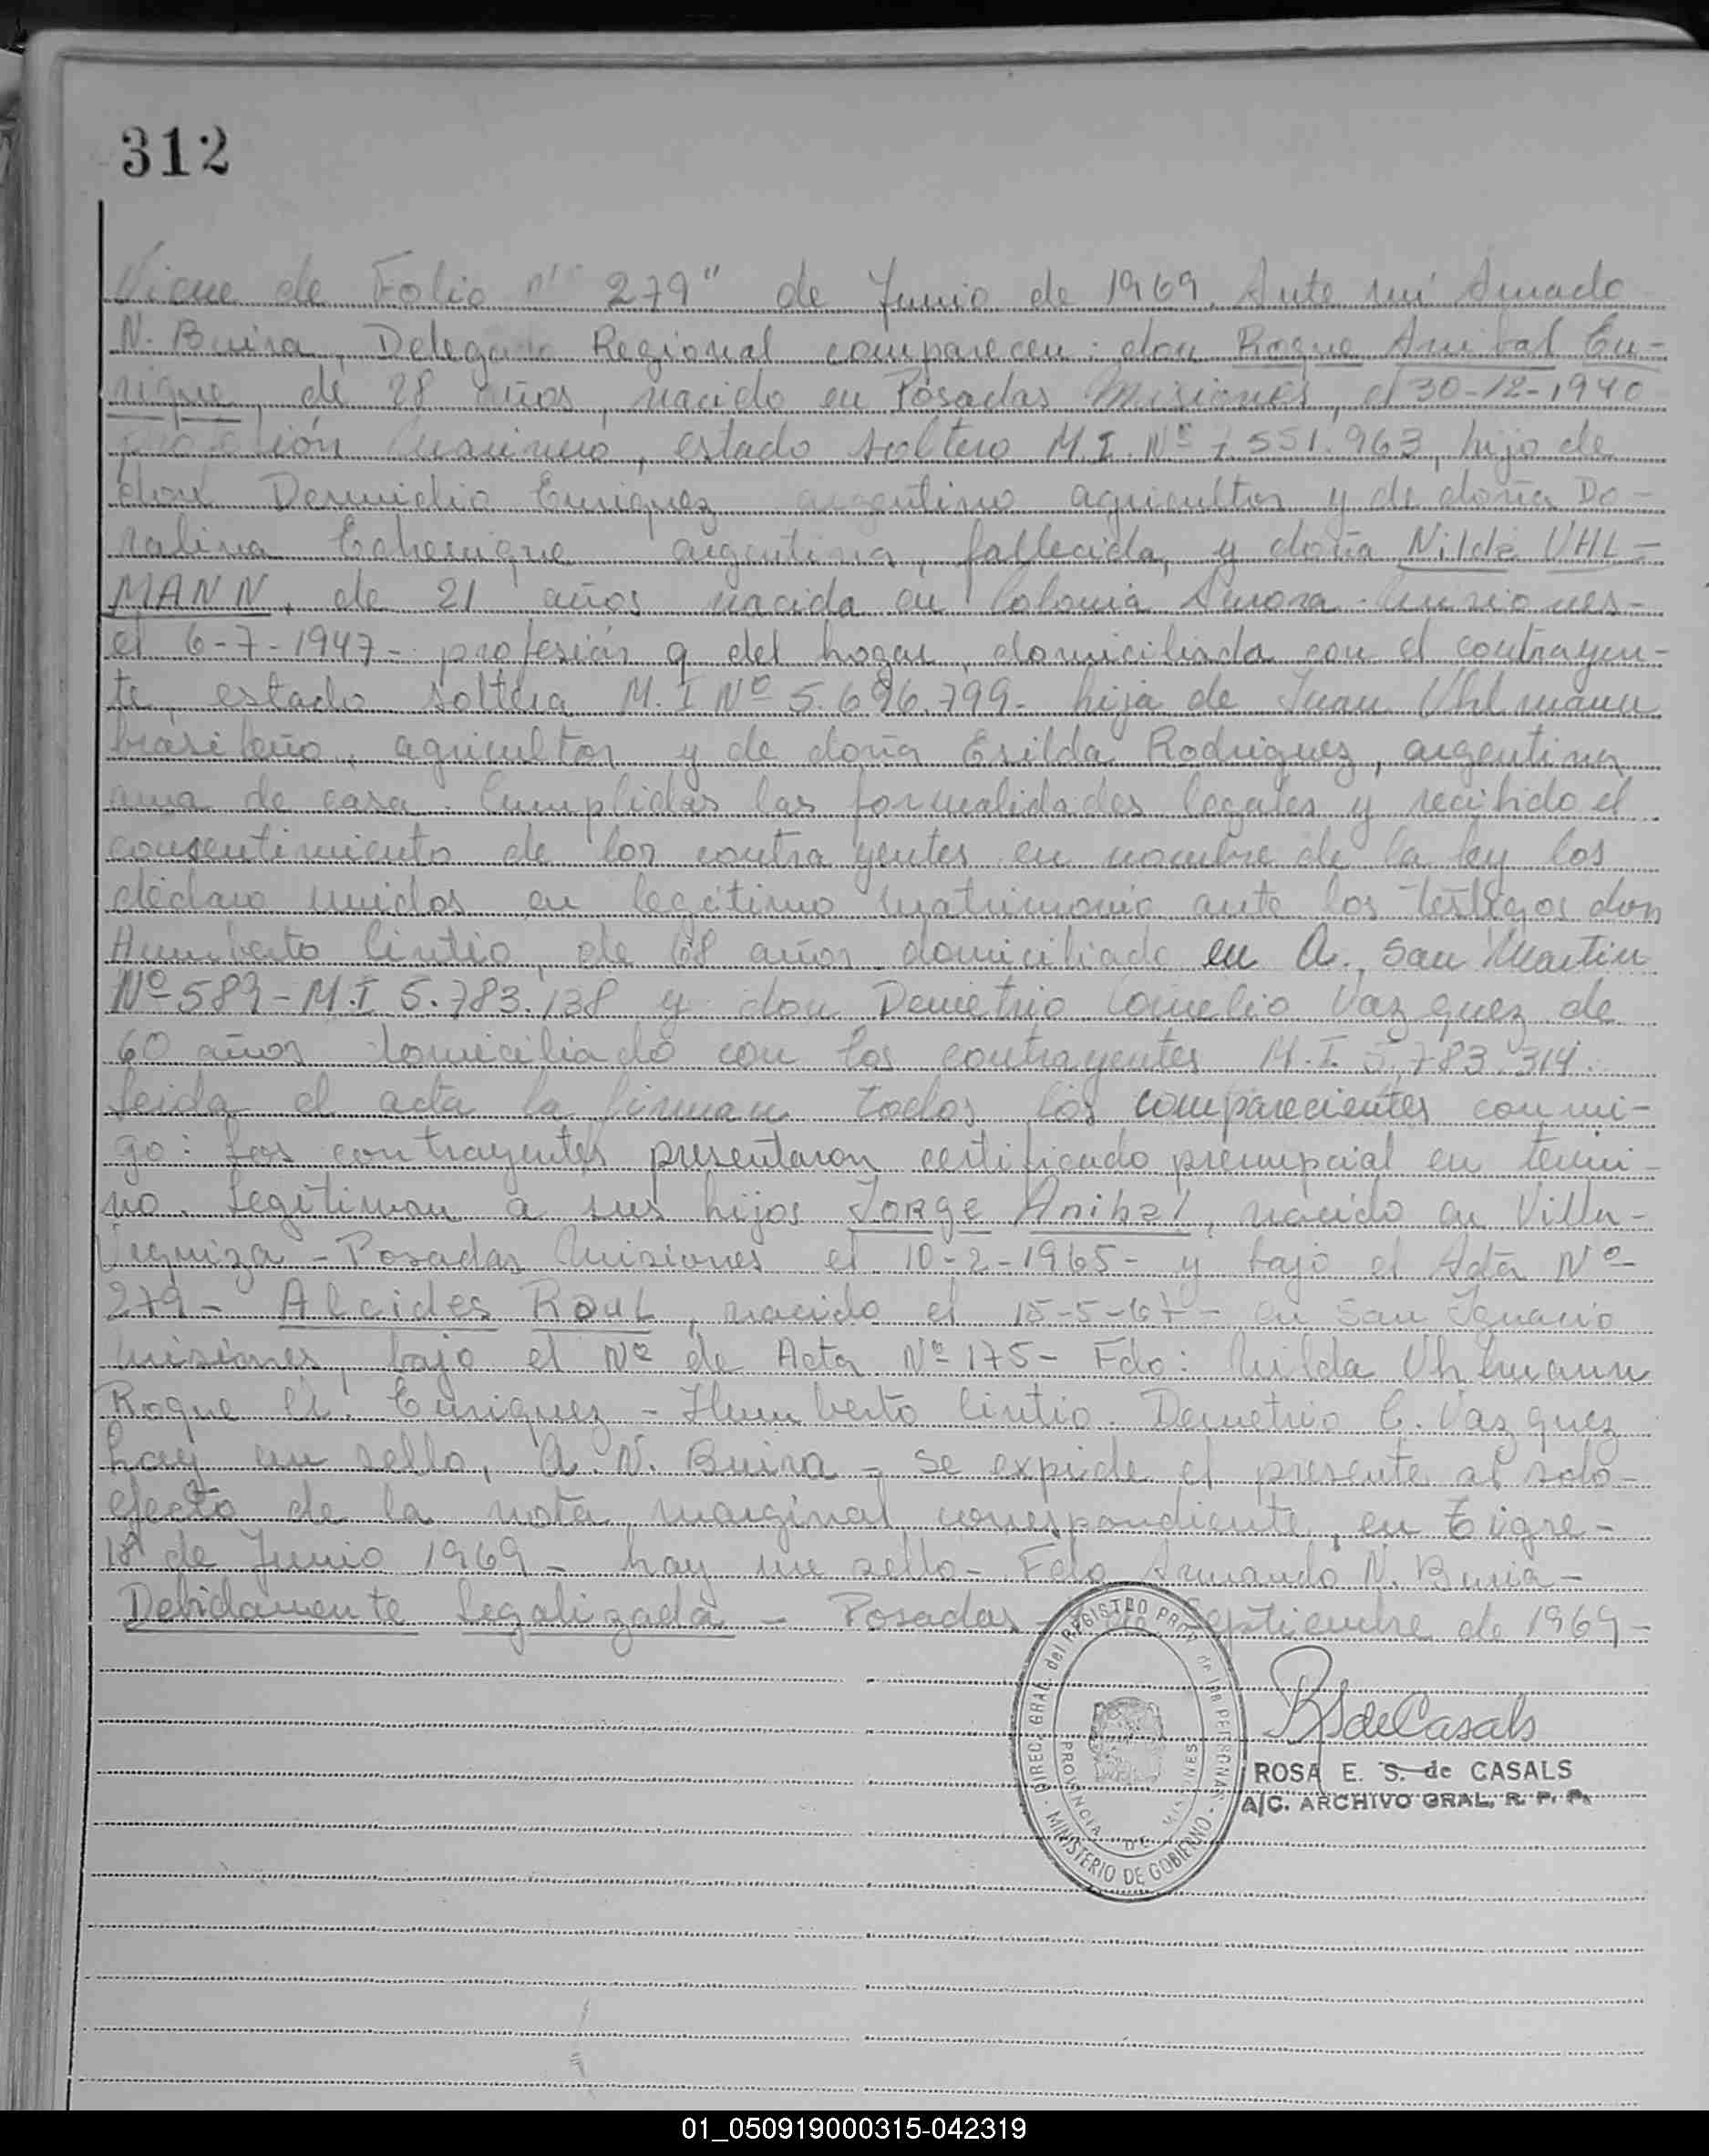 312
Viene de Folio nº 279" de Junio de 1969. Ante mi Amado
N. Buira, Delegado Regional comparecen: don Roque Anibal En-
rique, de 28 años, nacido en Posadas Misiones, el 30-12-1940
profesión marinero, estado soltero M.I. Nº 7.551.963, hijo de
don Dermidio Enriquez argentino agricultor y de doña Do-
ralina Echenique argentina, fallecida, y doña Nilda UHL-
MANN, de 21 años nacida en Colonia Aurora. Misiones-
el 6-7-1947- profesión q del hogar, domiciliada con el contrayen-
te, estado soltera M.I Nº 5.696.799- hija de Juan Uhlmann
brasileño, agricultor y de doña Esilda Rodriguez, argentina
ama de casa. Cumplidas las formalidades legales y recibido el
consentimiento de los contra yentes en nombre de la ley los
declaro unidos en legitimo matrimonio ante los testigos don
Humberto Cintio, de 68 años domiciliado en A. San Martin
Nº 589- M.I 5.783.138 y don Demetrio Cornelio Vazquez de
60 años domiciliado con los contrayentes M.I. 5.783.314.
Leida el acta la firman todos los comparecientes conmi-
go: Los contrayentes presentaron certificado prenupcial en termi-
no. Legitiman a sus hijos Jorge Anibal, nacido en Villa-
Urquiza - Posadas Misiones el 10-2-1965- y bajo el Acta Nº-
279- Alcides Raul, nacido el 15-5-67- en San Ignacio
Misiones, bajo el Nº de Acta Nº 175- Fdo: Nilda Uhlmann
Roque A. Enriquez - Humberto Cintio. Demetrio C. Vazquez
hay un sello, A. N. Buira - se expide el presente al solo-
efecto de la nota marginal correspondiente, en Tigre-
18 de Junio 1969- hay un sello- Fdo Armando N. Buira-
Debidamente Legalizada - Posadas - Septiembre de 1969-
DIREC. GRAL. del REGISTRO PROV. de las PERSONAS
PROVINCIA DE MISIONES
- MINISTERIO DE GOBIERNO -
RSdeCasals
ROSA E. S. de CASALS
A/C. ARCHIVO GRAL. R. P. P.
01_050919000315-042319